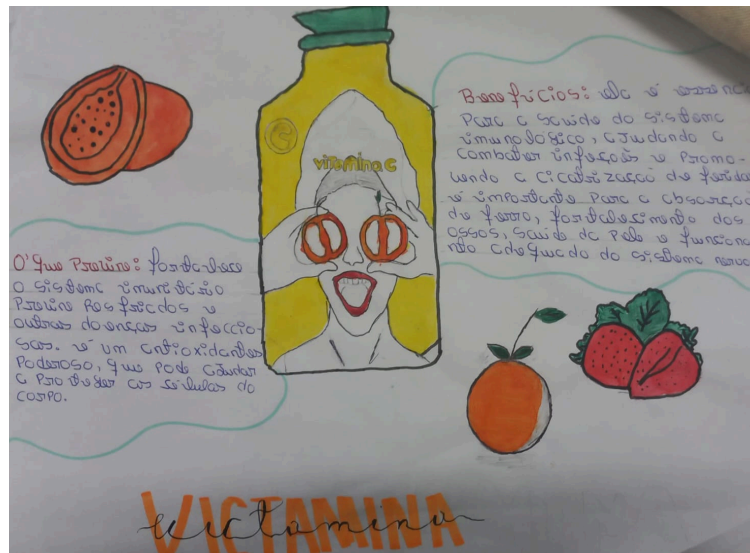 Benefícios: Ela é essenci
Para a saúde do sistema
imunologico, ajudando a
combater infeçoõs e Promo-
vendo a cicatrização de ferida
é importante Para a absorçao
de ferro, fortalesimento dos
ossos, saúde da Pele e funciona
não adequado do sistema nervo
vitamina C
O'que Previne: fortalece
o sistema imunitário
Previne Resfriados e
outras doenças infeccio-
sas. é um antioxidantes
Poderoso, que Pode ajudar
a Proteger as sélulas do
corpo.
VICTAMINA
victamina